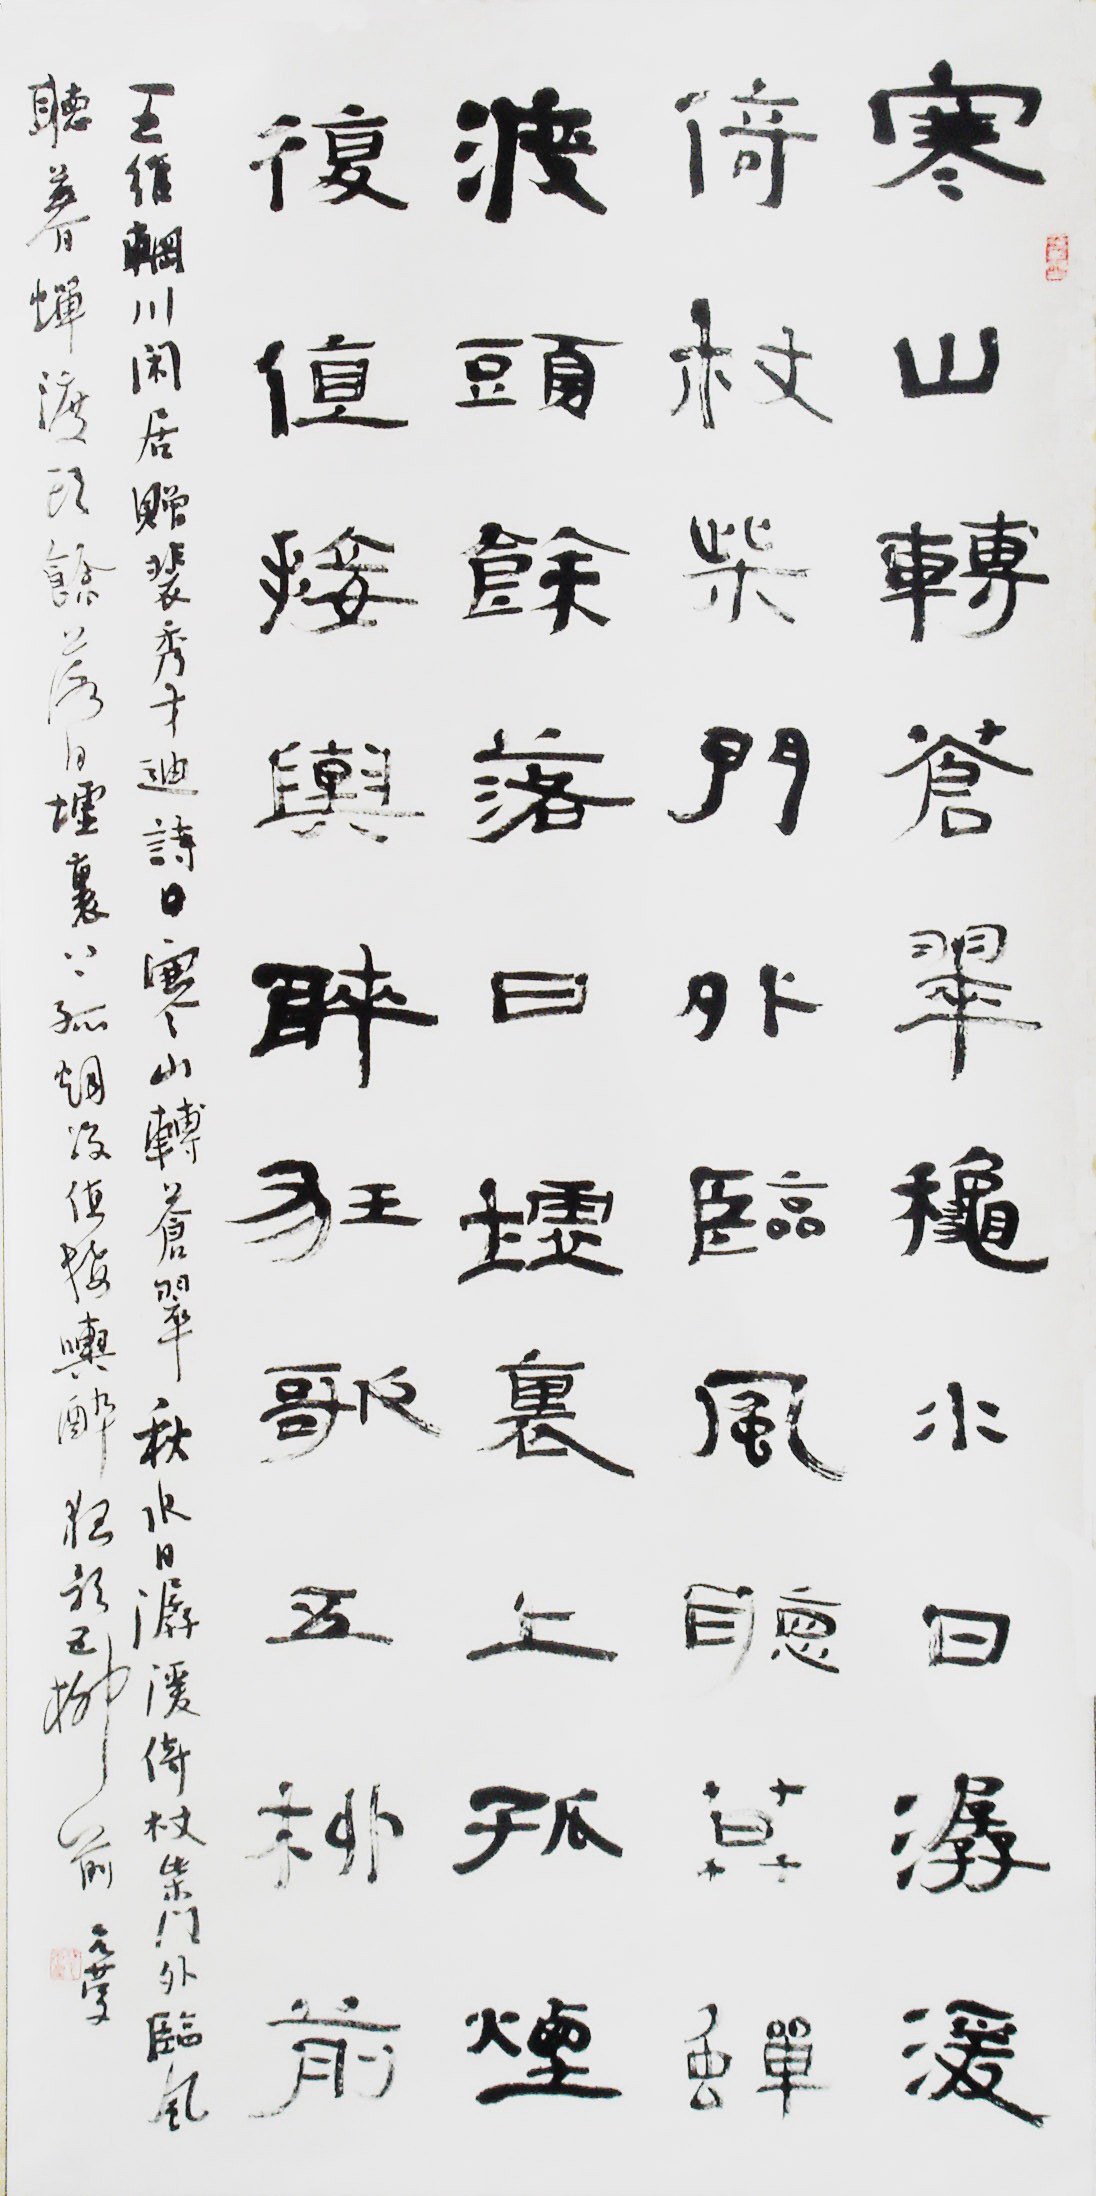 寒山轉蒼翠穐水日潺湲
倚杖柴門外臨風聽莫蟬
渡頭餘落日墟裏上孤煙
復值接輿醉狂歌五柳前
王維輞川閑居贈裴秀才迪詩曰寒山轉蒼翠秋水日潺湲倚杖柴門外臨風
聽暮蟬渡頭餘落日墟裏上孤烟復值接輿醉狂歌五柳前